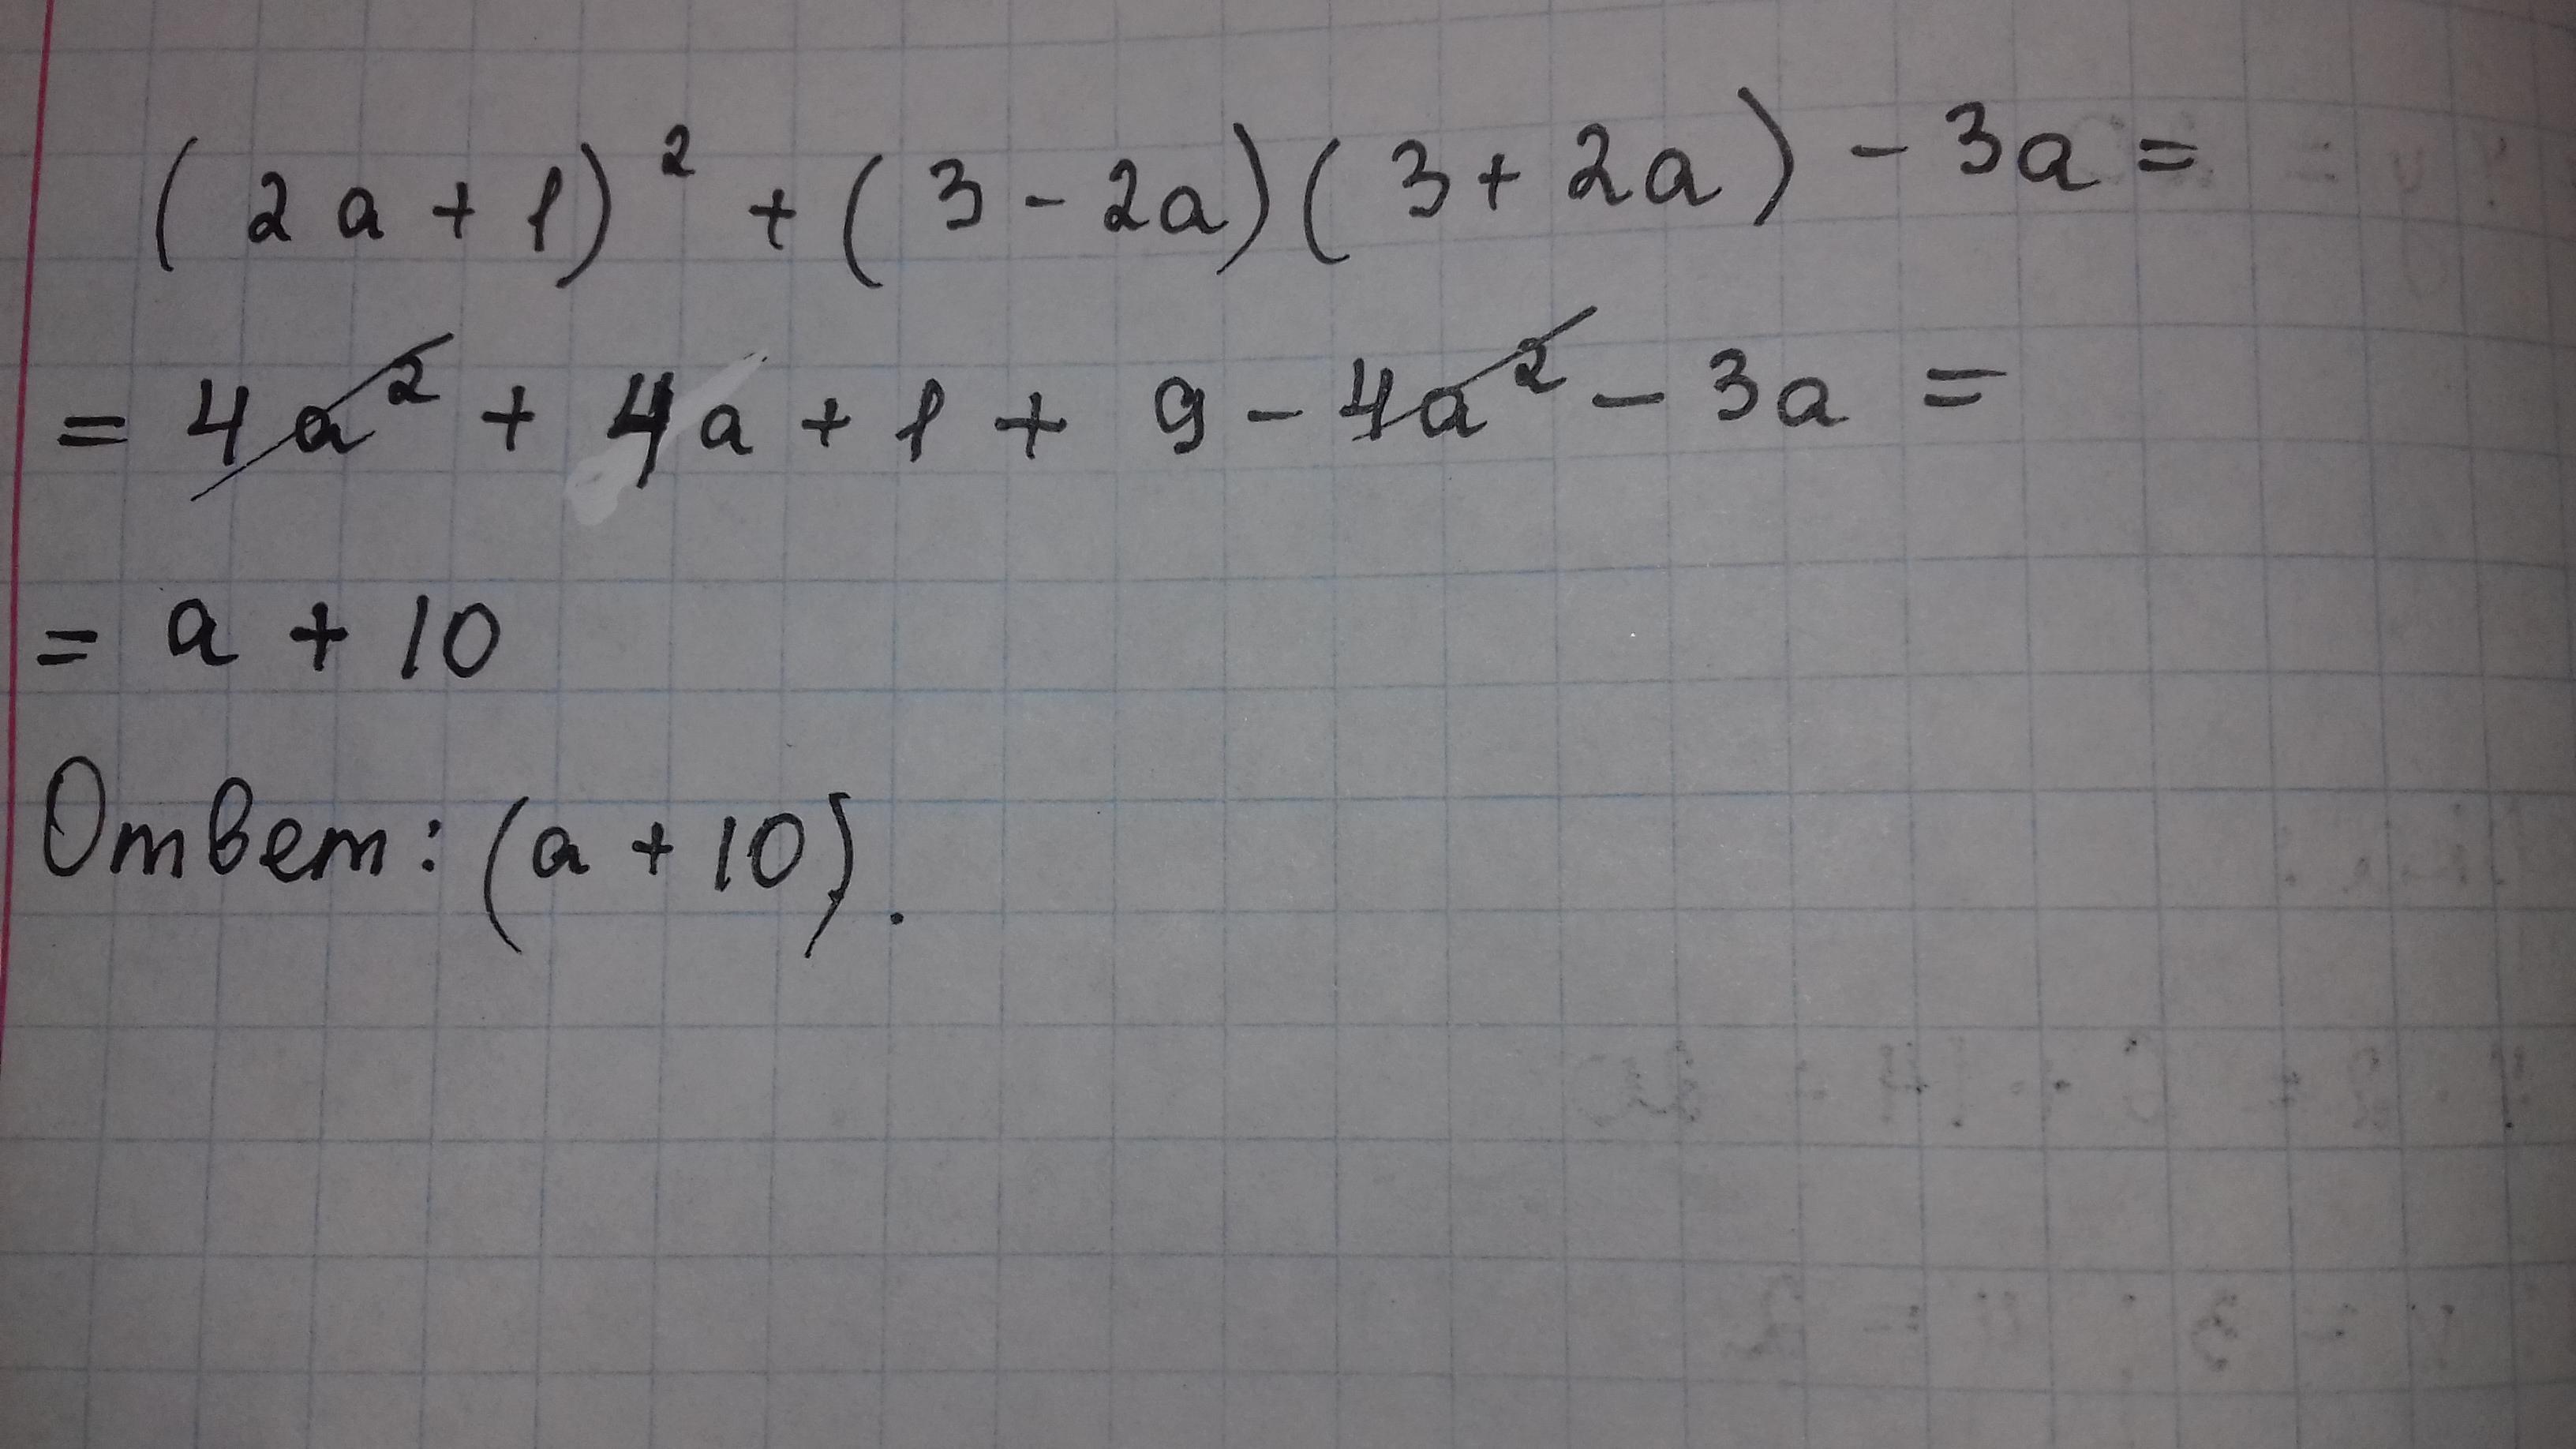 (2a+1)² + (3-2a)(3+2a) - 3a =
= 4a² + 4a + 1 + 9 - 4a² - 3a =
= a + 10
Ответ: (a + 10).